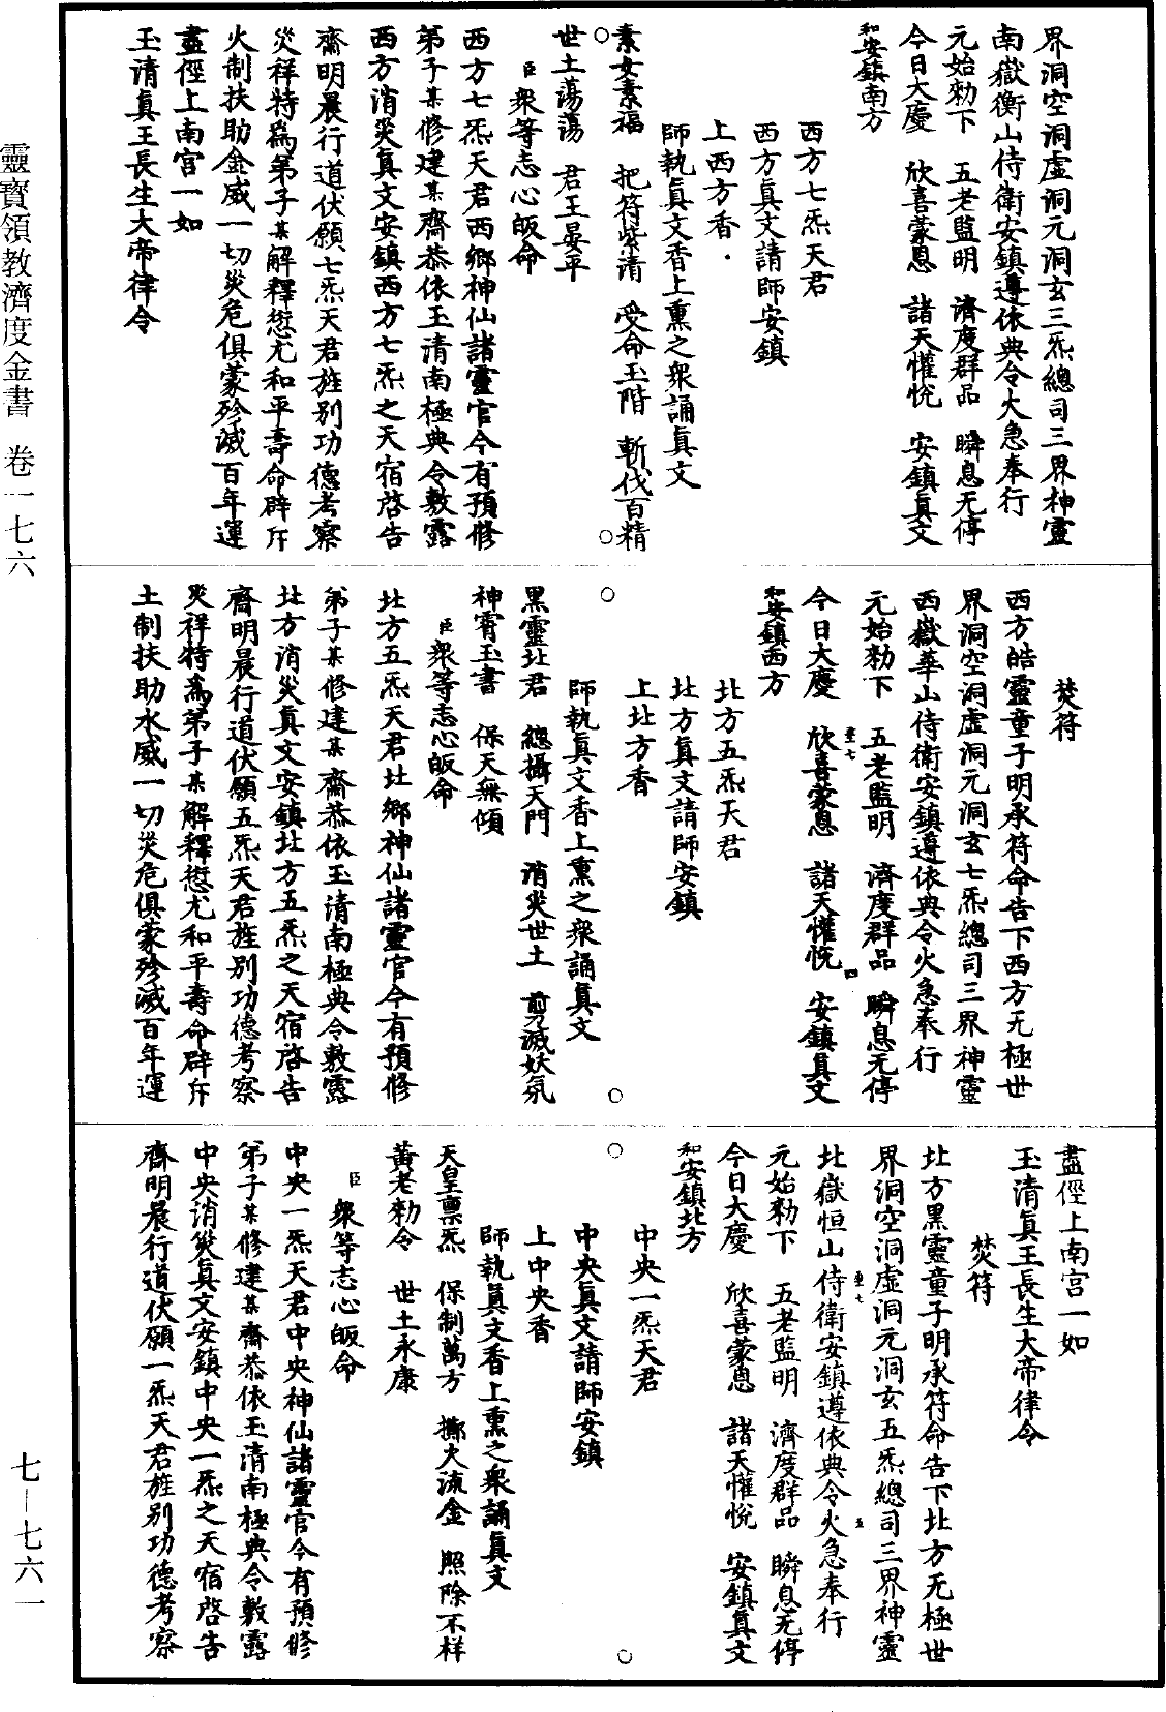 界洞空洞虛洞元洞玄三炁總司三界神靈
南嶽衡山侍衛安鎮遵依典令火急奉行
元始勑下　五老監明　濟度群品　瞬息无停
今日大慶　欣喜蒙恩　諸天懽悅　安鎮眞文
和安鎮南方
西方七炁天君
西方眞文請師安鎮
上西方香
師執眞文香上熏之衆誦眞文
○素女素福　把符紫清　受命玉階　斬伐百精○
世土蕩蕩　君王晏平
臣衆等志心皈命
西方七炁天君西鄉神仙諸靈官今有預修
弟子某修建某齋恭依玉清南極典令敷露
西方消災眞文安鎮西方七炁之天宿啓告
齋明晨行道伏願七炁天君旌別功德考察
災祥特爲弟子某解釋愆尤和平壽命辟斥
火制扶助金威一切災危俱蒙殄滅百年運
盡徑上南宮一如
玉清眞王長生大帝律令
焚符
西方皓靈童子明承符命告下西方无極世
界洞空洞虛洞元洞玄七炁總司三界神靈
西嶽華山侍衛安鎮遵依典令火急奉行
元始勑下　五老監明　濟度群品　瞬息无停
今日大慶　欣喜蒙恩　諸天懽悅　安鎮眞文
和安鎮西方
北方五炁天君
北方眞文請師安鎮
上北方香
師執眞文香上熏之衆誦眞文
○黑靈北君　總攝天門　消災世土　剪滅妖氛○
神霄玉書　保天無傾
臣衆等志心皈命
北方五炁天君北鄉神仙諸靈官今有預修
弟子某修建某齋恭依玉清南極典令敷露
北方消災眞文安鎮北方五炁之天宿啓告
齋明晨行道伏願五炁天君旌別功德考察
災祥特爲弟子某解釋愆尤和平壽命辟斥
土制扶助水威一切災危俱蒙殄滅百年運
盡徑上南宮一如
玉清眞王長生大帝律令
焚符
北方黑靈童子明承符命告下北方无極世
界洞空洞虛洞元洞玄五炁總司三界神靈
北嶽恒山侍衛安鎮遵依典令火急奉行
元始勑下　五老監明　濟度群品　瞬息无停
今日大慶　欣喜蒙恩　諸天懽悅　安鎮眞文
和安鎮北方
中央一炁天君
中央眞文請師安鎮
上中央香
師執眞文香上熏之衆誦眞文
○天皇稟炁　保制萬方　擲火流金　照除不祥○
黃老勑令　世土永康
臣衆等志心皈命
中央一炁天君中央神仙諸靈官今有預修
弟子某修建某齋恭依玉清南極典令敷露
中央消災眞文安鎮中央一炁之天宿啓告
齋明晨行道伏願一炁天君旌別功德考察
靈寶領教濟度金書　卷一七六
七—七六一